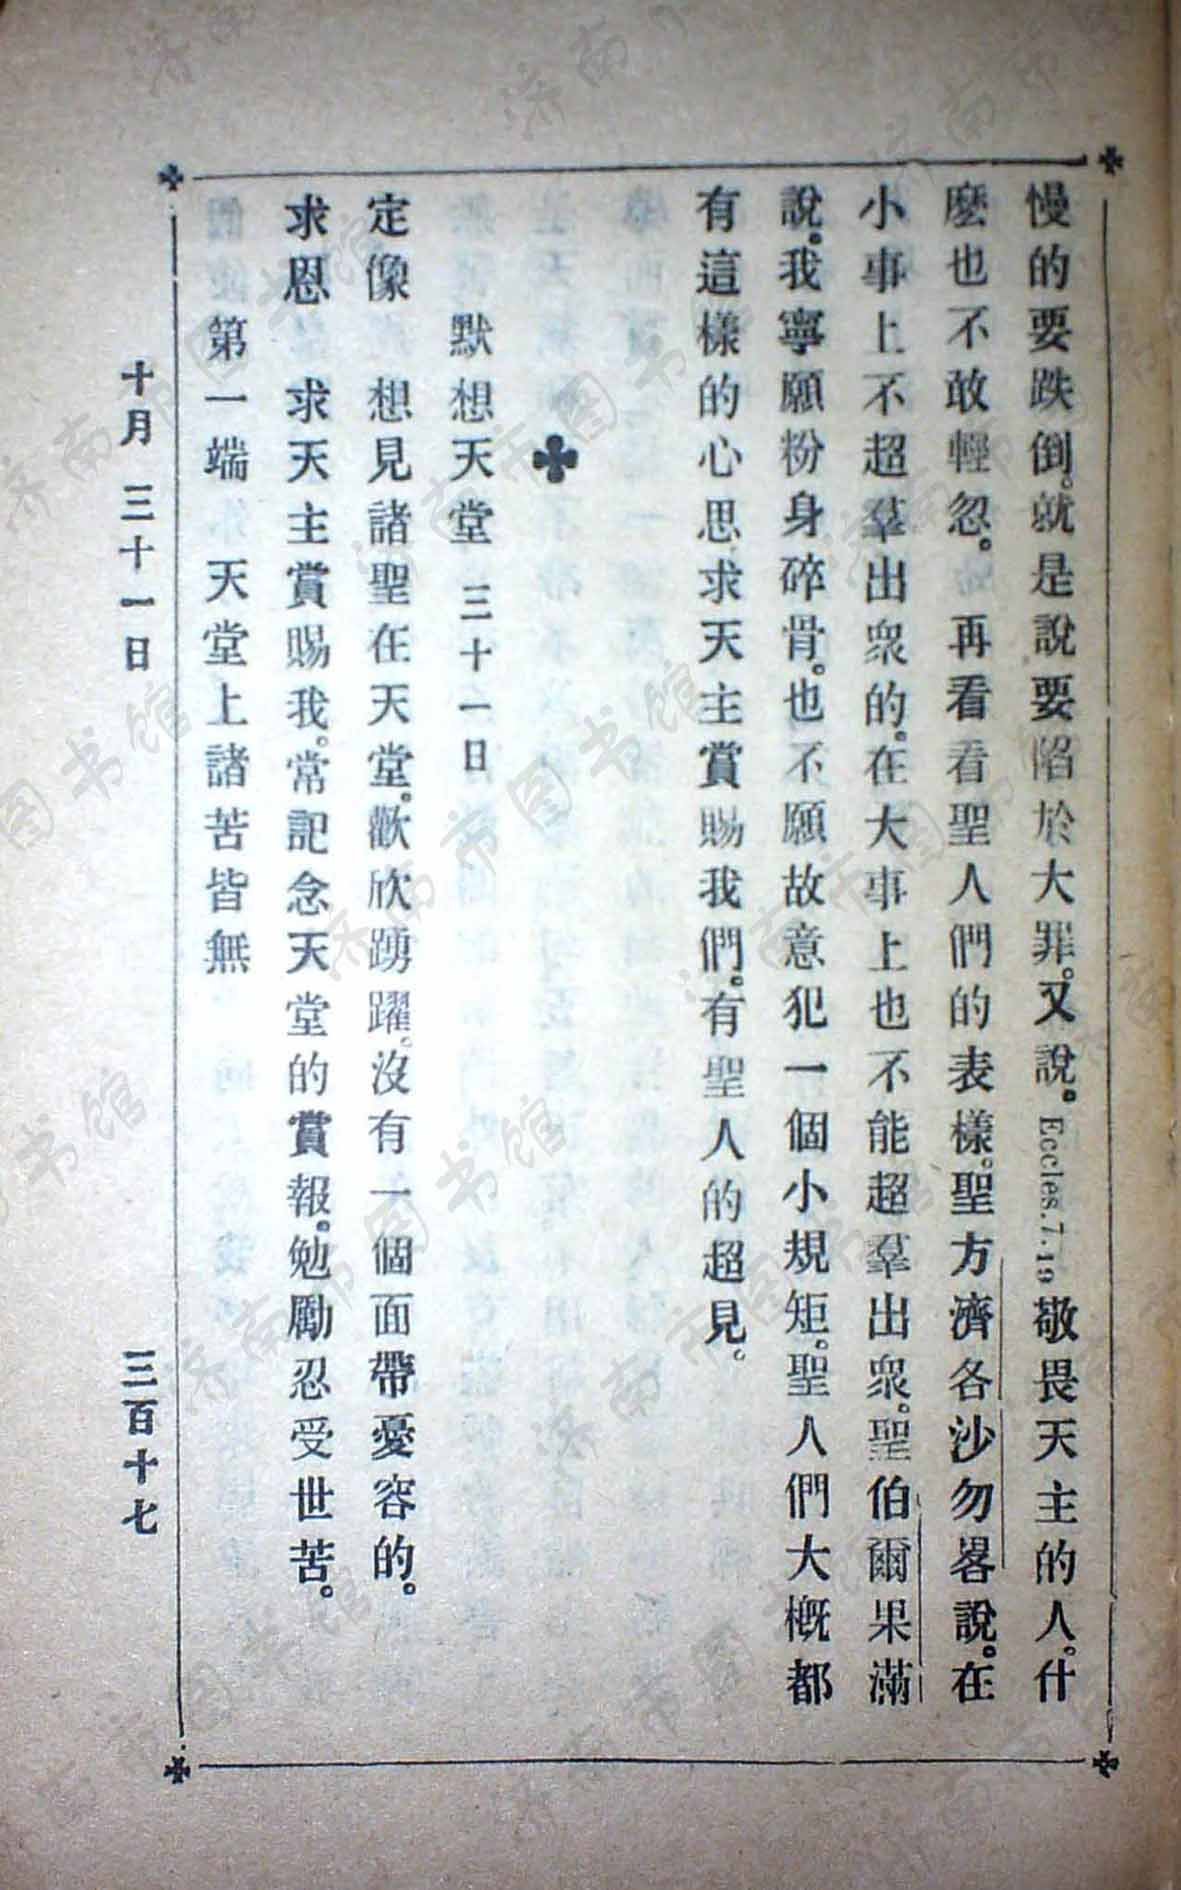 慢的要跌倒。就是說要陷於大罪。又說。Eccles.7.19敬畏天主的人。什
麽也不敢輕忽。再看看聖人們的表樣。聖方濟各沙勿畧說。在
小事上不超羣出衆的。在大事上也不能超羣出衆。聖伯爾果滿
說。我寧願粉身碎骨。也不願故意犯一個小規矩。聖人們大槪都
有這樣的心思。求天主賞賜我們。有聖人的超見。
默想天堂 三十一日
定像 想見諸聖在天堂。歡欣踴躍。沒有一個面帶憂容的。
求恩 求天主賞賜我。常記念天堂的賞報。勉勵忍受世苦。
第一端 天堂上諸苦皆無
十月 三十一日 三百十七
济南市图书馆